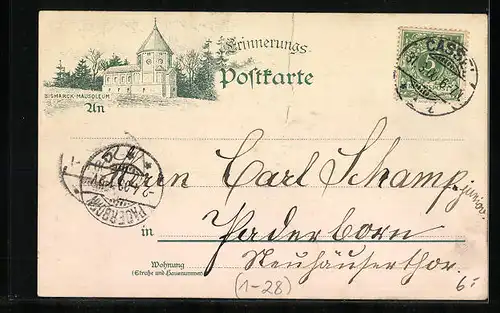 Erinnerungs-
Postkarte
BISMARCK-MAUSOLEUM.
CASSEL
5
An
PADERBORN
Herrn Carl Schamp junior.
in Paderborn
Wohnung
(Straße und Hausnummer)
Neuhäuserthor.
(1-28)
6.